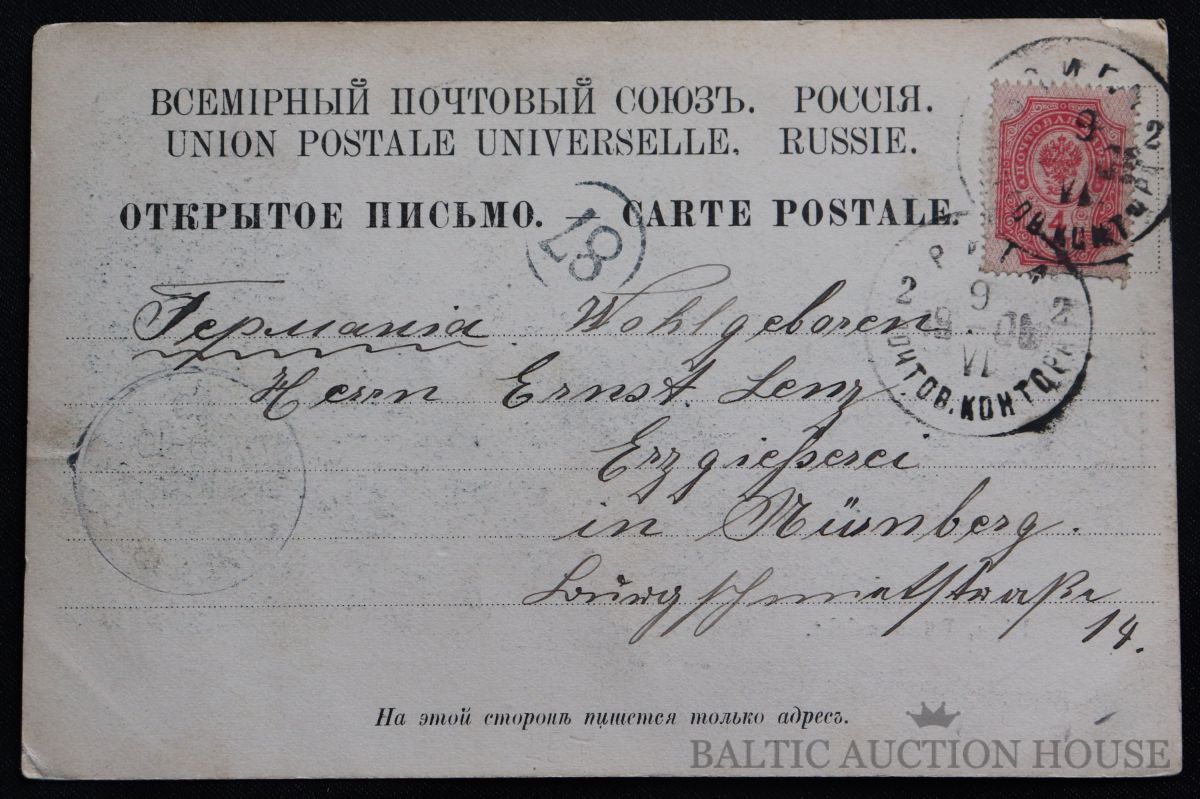 ВСЕМІРНЫЙ ПОЧТОВЫЙ СОЮЗЪ. РОССІЯ.
UNION POSTALE UNIVERSELLE. RUSSIE.
ОТКРЫТОЕ ПИСЬМО. — CARTE POSTALE.
87
РИГА
2 9 2
VI
ПОЧТОВ. КОНТОРА
9 2
VI
4
Германія Wohlgeboren
Herrn Ernst Lenz
Erzgießerei
in Nürnberg.
Burgschmietstraße
14.
На этой сторонѣ пишется только адресъ.
BALTIC AUCTION HOUSE